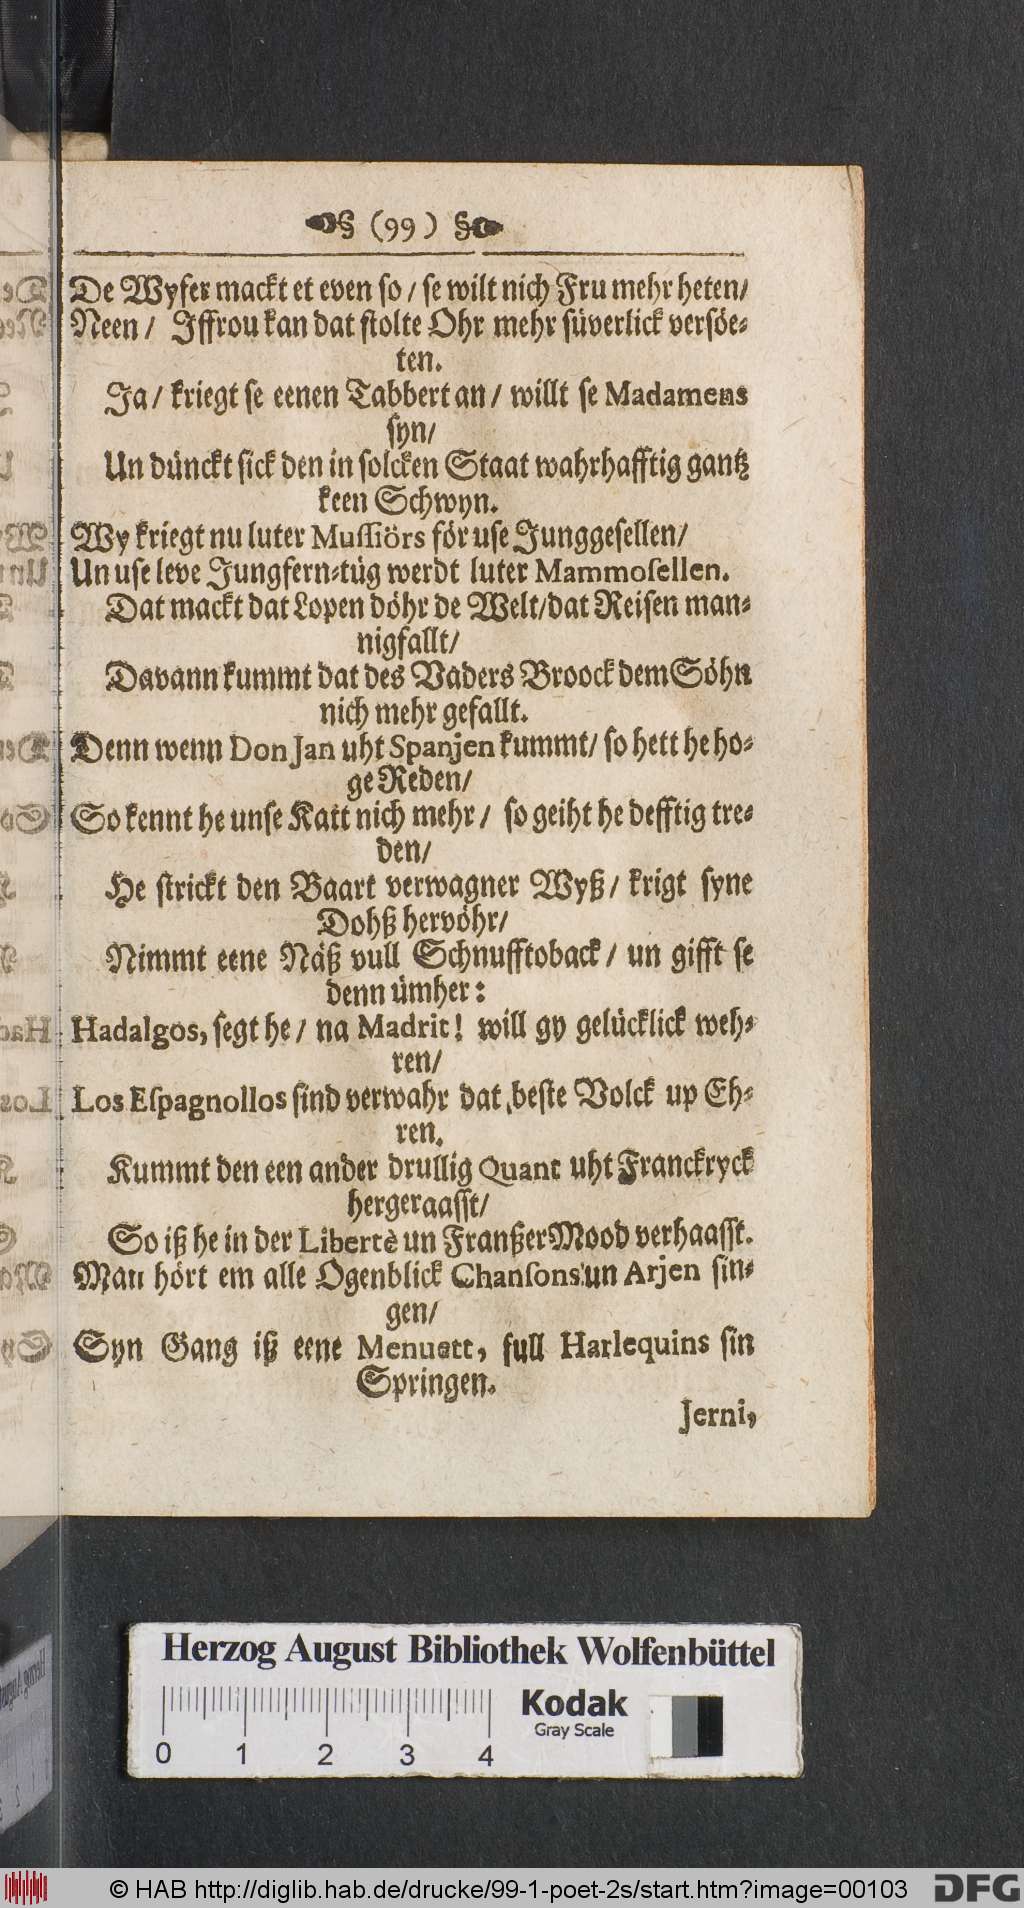 § (99) §
De Wyfer mackt et even so / se wilt nich Fru mehr heten/
Neen / Jffrou kan dat stolte Ohr mehr süverlick versöe-
ten.
Ja / kriegt se eenen Tabbert an / willt se Madamens
syn/
Un dünckt sick den in solcken Staat wahrhafftig gantz
keen Schwyn.
Wy kriegt nu luter Mussiörs för use Junggesellen/
Un use leve Jungfern-tüg werdt luter Mammosellen.
Dat mackt dat Lopen döhr de Welt/dat Reisen man-
nigfallt/
Davann kummt dat des Vaders Broock dem Söhn
nich mehr gefallt.
Denn wenn Don Jan uht Spanjen kummt/ so hett he ho-
ge Reden/
So kennt he unse Katt nich mehr / so geiht he defftig tre-
den/
He strickt den Baart verwagner Wyß / krigt syne
Dohß hervöhr/
Nimmt eene Näß vull Schnufftoback / un gifft se
denn ümher:
Hadalgos, segt he / na Madrit! will gy gelücklick weh-
ren/
Los Espagnollos sind verwahr dat beste Volck up Eh-
ren.
Kummt den een ander drullig Quant uht Franckryck
hergeraasst/
So iß he in der Libertè un Franßer Mood verhaasst.
Man hört em alle Ogenblick Chansons un Arjen sin-
gen/
Syn Gang iß eene Menuett, full Harlequins sin
Springen.
Jerni,
Herzog August Bibliothek Wolfenbüttel
Kodak
Gray Scale
0 1 2 3 4
© HAB http://diglib.hab.de/drucke/99-1-poet-2s/start.htm?image=00103
DFG